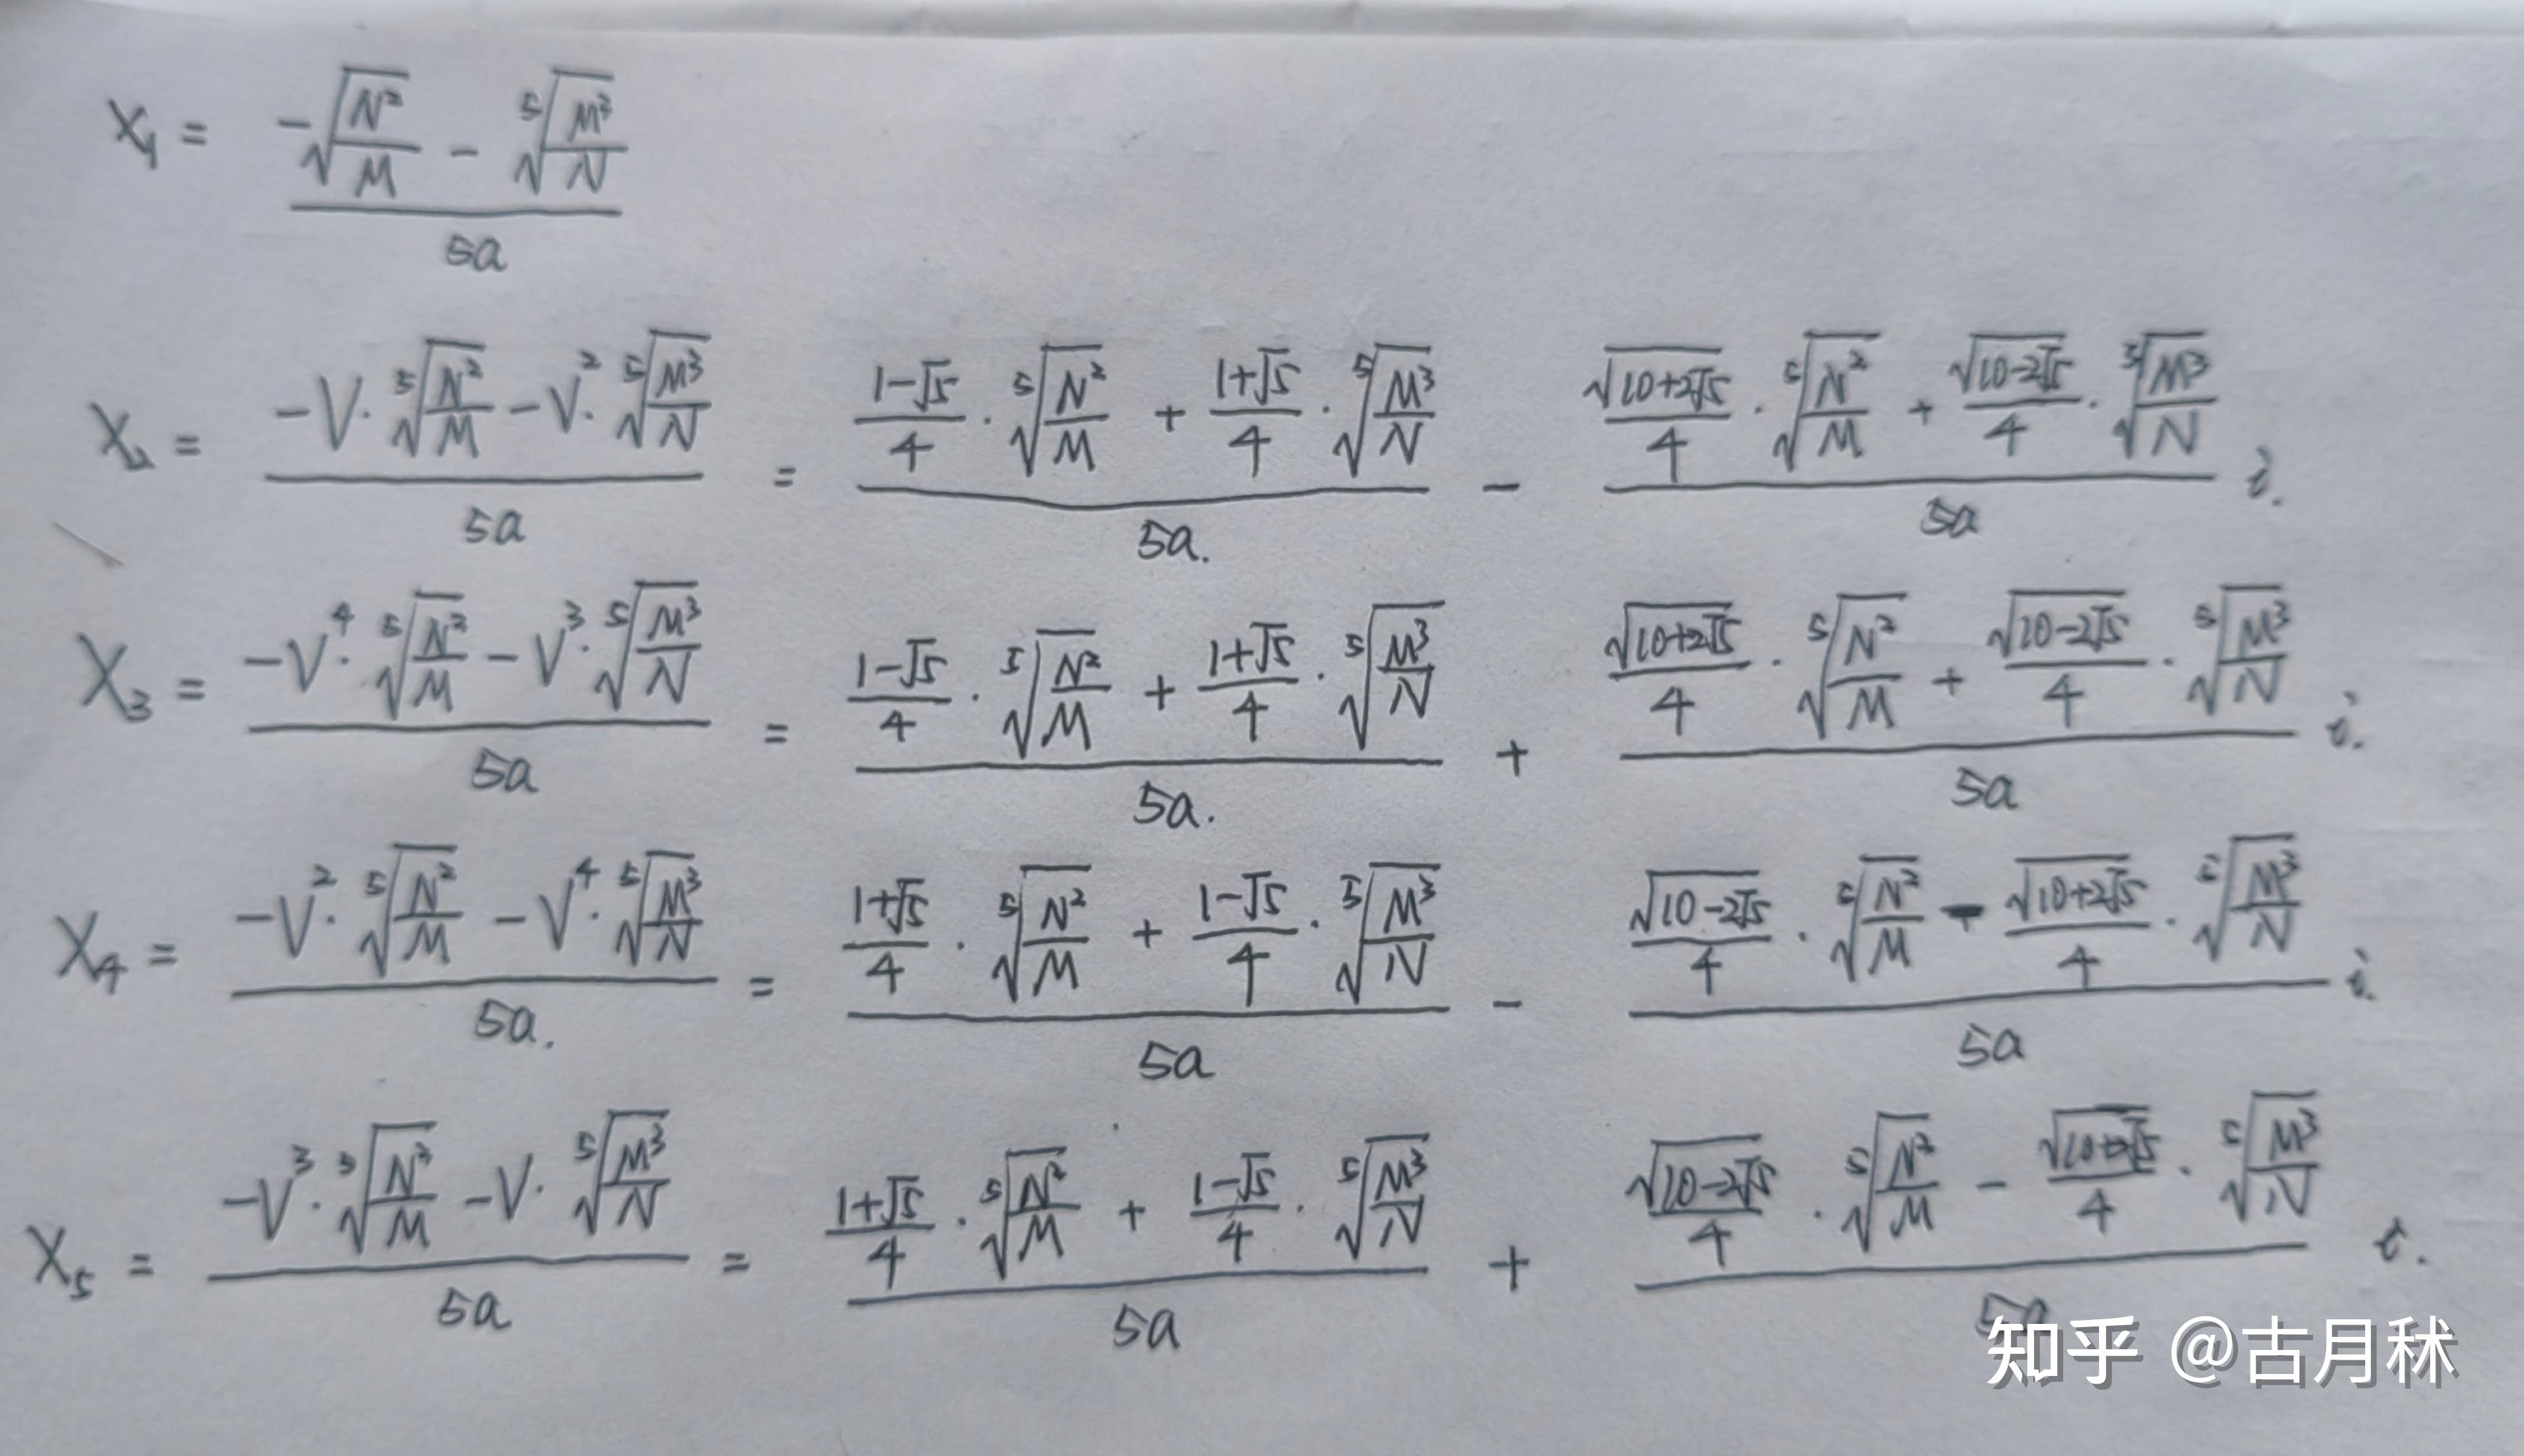 X₁ = (-√(N²/M) - ⁵√(M³/N)) / 5a
X₂ = (-V·⁵√(N²/M) - V²·⁵√(M³/N)) / 5a = ((1-√5)/4·⁵√(N²/M) + (1+√5)/4·⁵√(M³/N)) / 5a. - (√(10+2√5)/4·⁵√(N²/M) + √(10-2√5)/4·³√(M³/N)) / 5a i.
X₃ = (-V⁴·⁵√(N²/M) - V³·⁵√(M³/N)) / 5a = ((1-√5)/4·⁵√(N²/M) + (1+√5)/4·⁵√(M³/N)) / 5a. + (√(10+2√5)/4·⁵√(N²/M) + √(10-2√5)/4·⁵√(M³/N)) / 5a i.
X₄ = (-V²·⁵√(N²/M) - V⁴·⁵√(M³/N)) / 5a. = ((1+√5)/4·⁵√(N²/M) + (1-√5)/4·⁵√(M³/N)) / 5a - (√(10-2√5)/4·⁵√(N²/M) - √(10+2√5)/4·⁵√(M³/N)) / 5a i.
X₅ = (-V³·⁵√(N²/M) - V·⁵√(M³/N)) / 5a = ((1+√5)/4·⁵√(N²/M) + (1-√5)/4·⁵√(M³/N)) / 5a + (√(10-2√5)/4·⁵√(N²/M) - √(10+2√5)/4·⁵√(M³/N)) / 5a i.
知乎 @古月秫